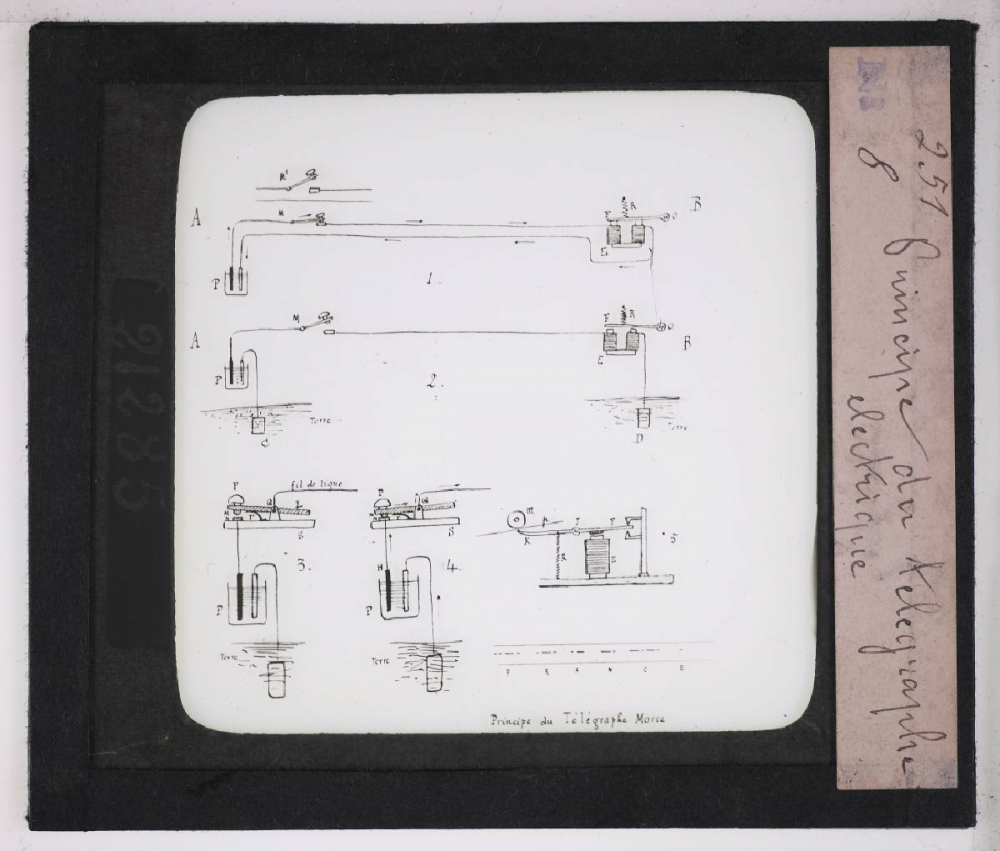 M'
A
M
F
R
O
B
E
P
1.
M
F
R
O
A
B
E
P
2.
Terre
C
D
Terre
P
fil de ligne
Q
S
3.
P
Terre
P
Q
S
H
4.
P
Terre
m
K
J
F
R
E
5
F R A N C E
Principe du Télégraphe Morse
251 Principe du télégraphe
8 électrique
21285